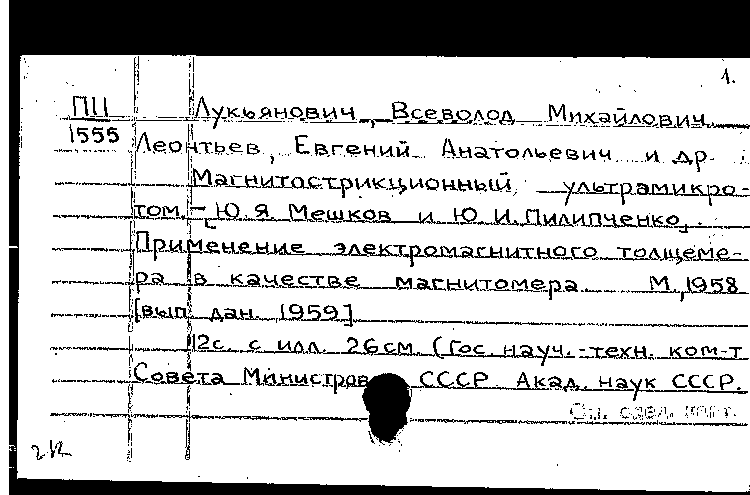 1.
ПЩ Лукьянович, Всеволод Михайлович.
1555 Леонтьев, Евгений Анатольевич и др.
Магнитострикционный ультрамикро-
том. - [Ю. Я. Мешков и Ю. И. Пилипченко].
Применение электромагнитного толщеме-
ра в качестве магнитомера. М., 1958
[вып. дан. 1959]
12с. с илл. 26см. (Гос. науч.-техн. ком-т
Совета Министров СССР. Акад. наук СССР.
См. след. карт.